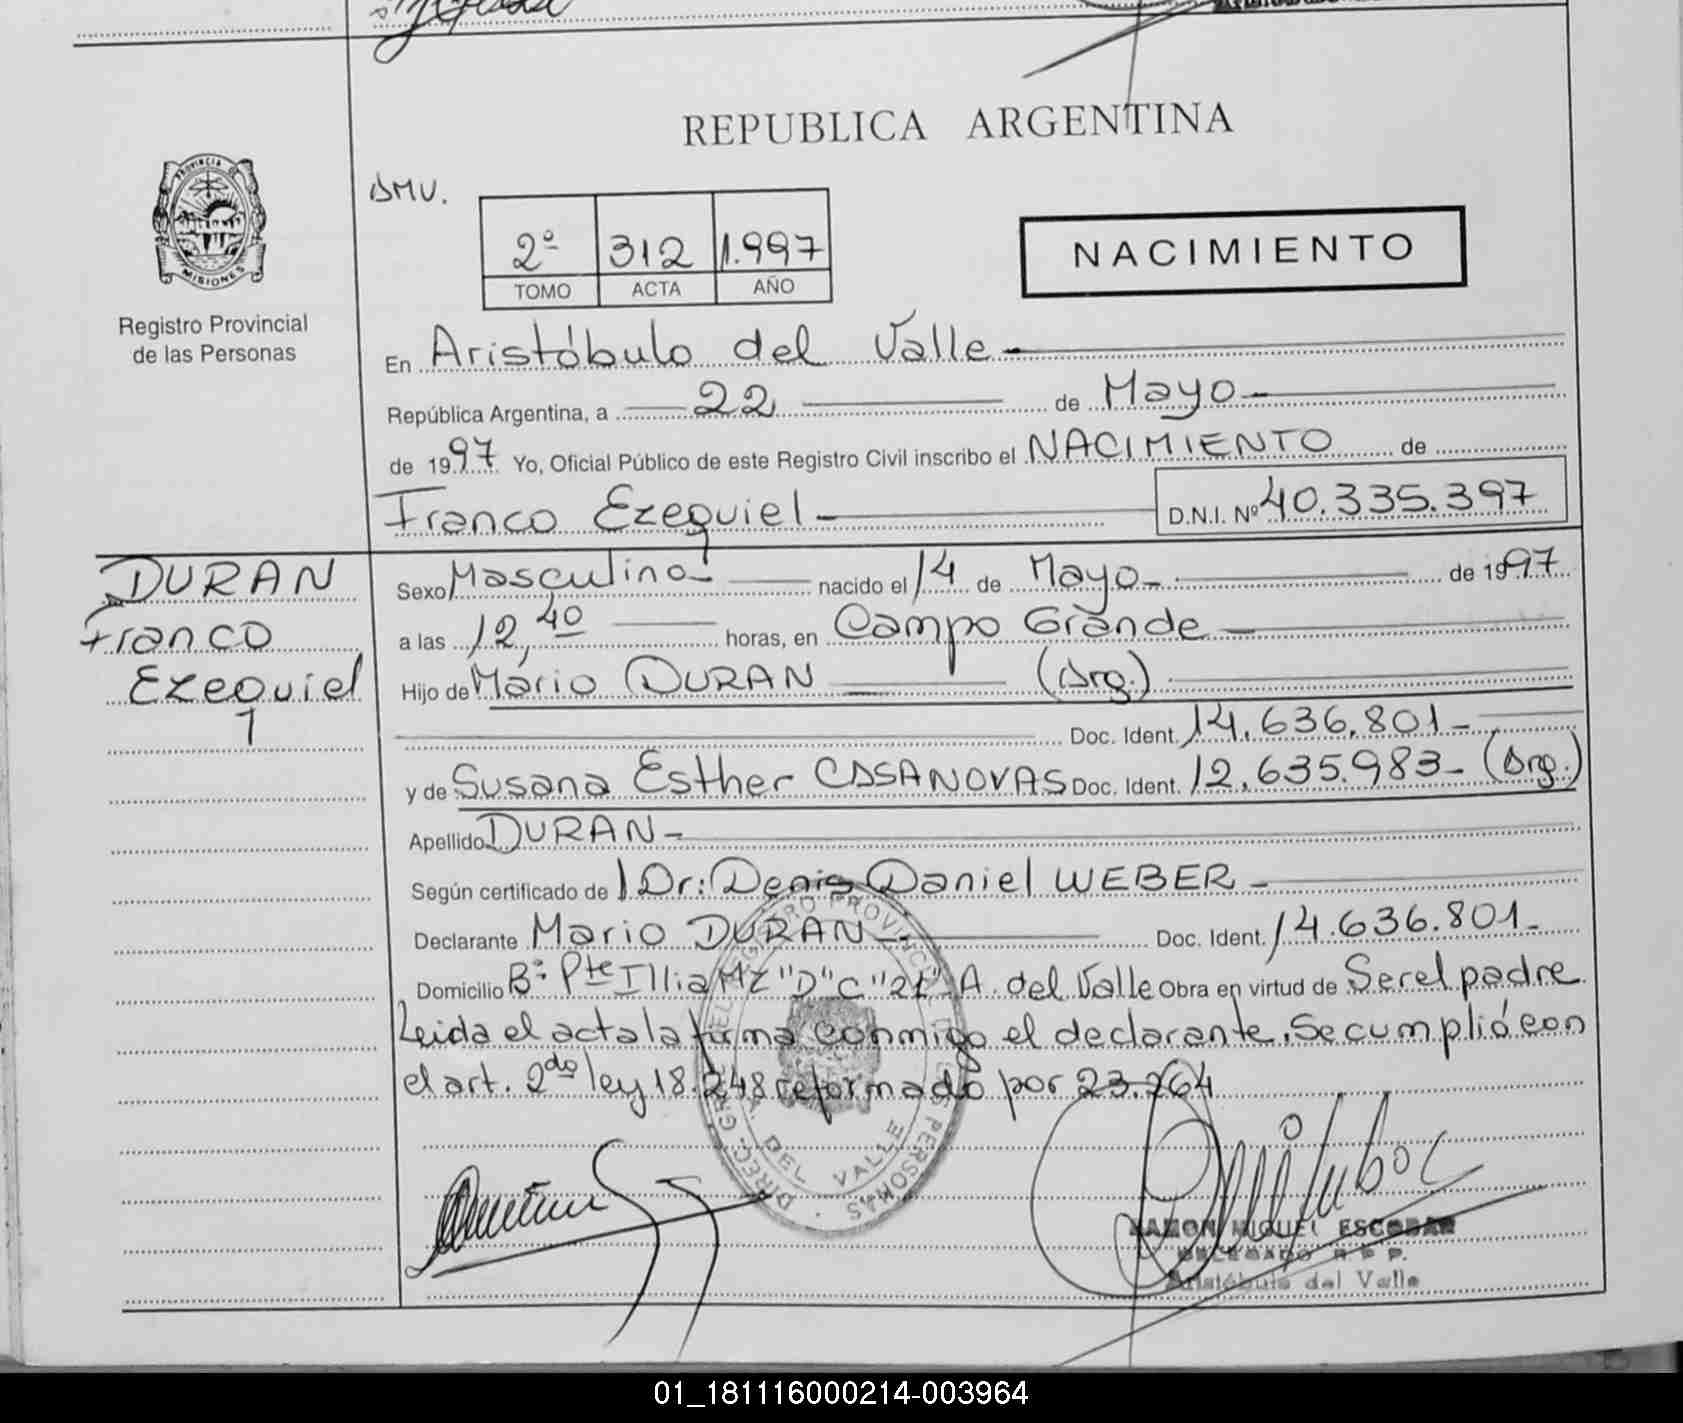 REPUBLICA ARGENTINA
PROVINCIA DE
MISIONES
Registro Provincial
de las Personas
2º 312 1.997
TOMO ACTA AÑO
NACIMIENTO
En Aristóbulo del Valle
República Argentina, a 22 de Mayo
de 1997 Yo, Oficial Público de este Registro Civil inscribo el NACIMIENTO de
Franco Ezequiel D.N.I. Nº 40.335.397
DURAN
Franco
Ezequiel
1
Sexo Masculino nacido el 14 de Mayo de 1997
a las 12,40 horas, en Campo Grande
Hijo de Mario DURAN (Arg.)
Doc. Ident. 14.636.801
y de Susana Esther CASANOVAS Doc. Ident. 12.635.983 (Arg.)
Apellido DURAN
Según certificado de Dr: Denis Daniel WEBER
Declarante Mario DURAN Doc. Ident. 14.636.801
Domicilio Bº Pte Illia MZ "D" C "21" A. del Valle Obra en virtud de Ser el padre
Leida el acta la firma conmigo el declarante. Se cumplió con
el art. 2do ley 18.248 reformado por 23.264
A. DEL VALLE
RAMON MIGUEL ESCOBAR
DELEGADO R.P.P.
Aristóbulo del Valle
01_181116000214-003964